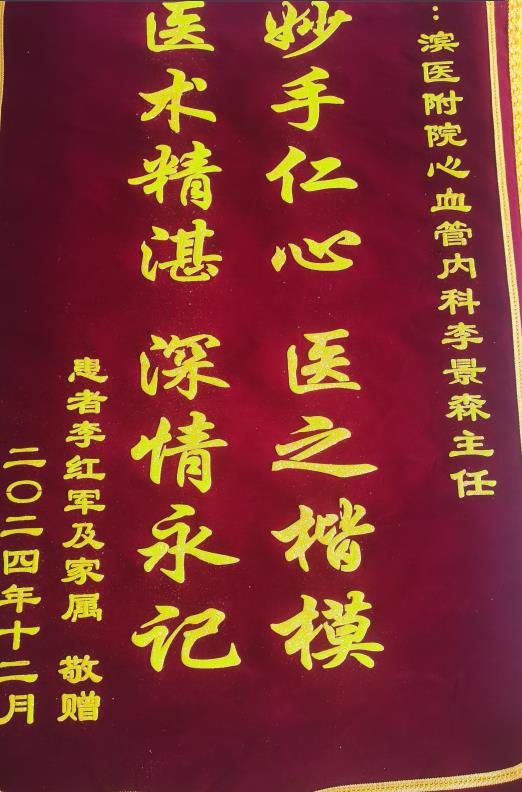 ：滨医附院心血管内科李景森主任
妙手仁心 医之楷模
医术精湛 深情永记
患者李红军及家属 敬赠
二〇二四年十二月